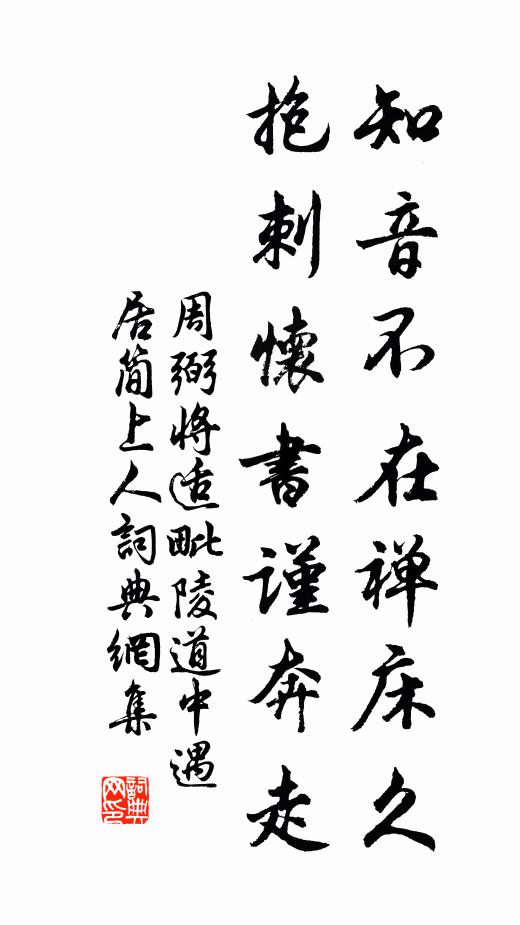 知音不在禅床久
抱刺懷書謹奔走
周弼將适毗陵道中遇
居简上人詞典網集
詞典
网印